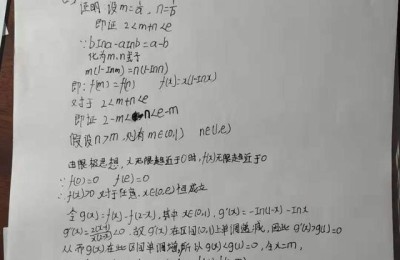 证明 设m=1/a, n=1/b
即证 2<m+n<e
∵blna-alnb=a-b
化为m,n关于
m(1-lnm)=n(1-lnn)
即: f(m)=f(n) f(x)=x(1-lnx)
对于 2<m+n<e
即证 2-m<n<e-m
假设n>m 则有m∈(0,1) n∈(1,e)
由限极思想,x无限趋近于0时,f(x)无限趋近于0
∵f(0)=0 f(e)=0
∴f(x)>0 对于任意,x∈(0,e)恒成立
令g(x)=f(x)-f(2-x),其中x∈(0,1), g'(x)=-ln(2-x)-lnx
<0 故g'(x)在区间(0,1)上单调递减,因此g'(x)>g'(1)=0
从而g(x)在此区间单调递增,所以g(x)<g(1)=0,令x=m,